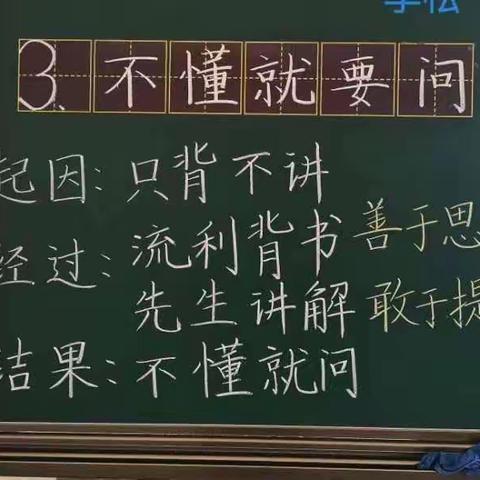 3、不懂就要问
起因：只背不讲
经过：流利背书 善于思
先生讲解 敢于提
结果：不懂就问